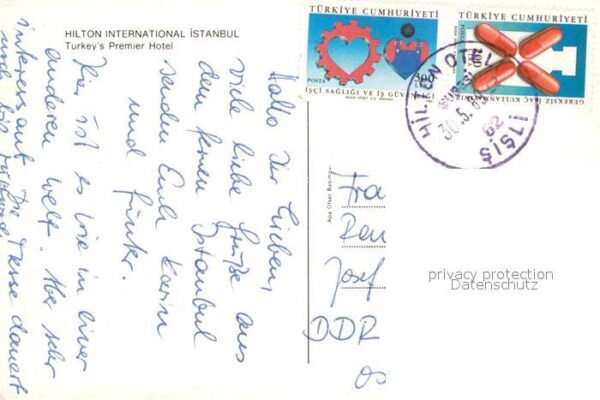 HILTON INTERNATIONAL İSTANBUL
Turkey's Premier Hotel
TÜRKİYE CUMHURİYETİ
POSTA
300
LİRA
İŞÇİ SAĞLIĞI VE İŞ GÜVENLİĞİ
TÜRKİYE CUMHURİYETİ
POSTA
200
LİRA
GEREKSİZ İLAÇ KULLANMAYINIZ
HİLTON OTELİ
30.5.
ŞİŞLİ
Hallo Ihr Lieben,
viele liebe Grüße aus
dem fernen Istanbul
senden Euch Karin
und Günter.
Hier ist es wie in einer
anderen Welt. Aber sehr
interessant. Die Messe dauert
Fra
Ren
Josef
DDR
privacy protection
Datenschutz